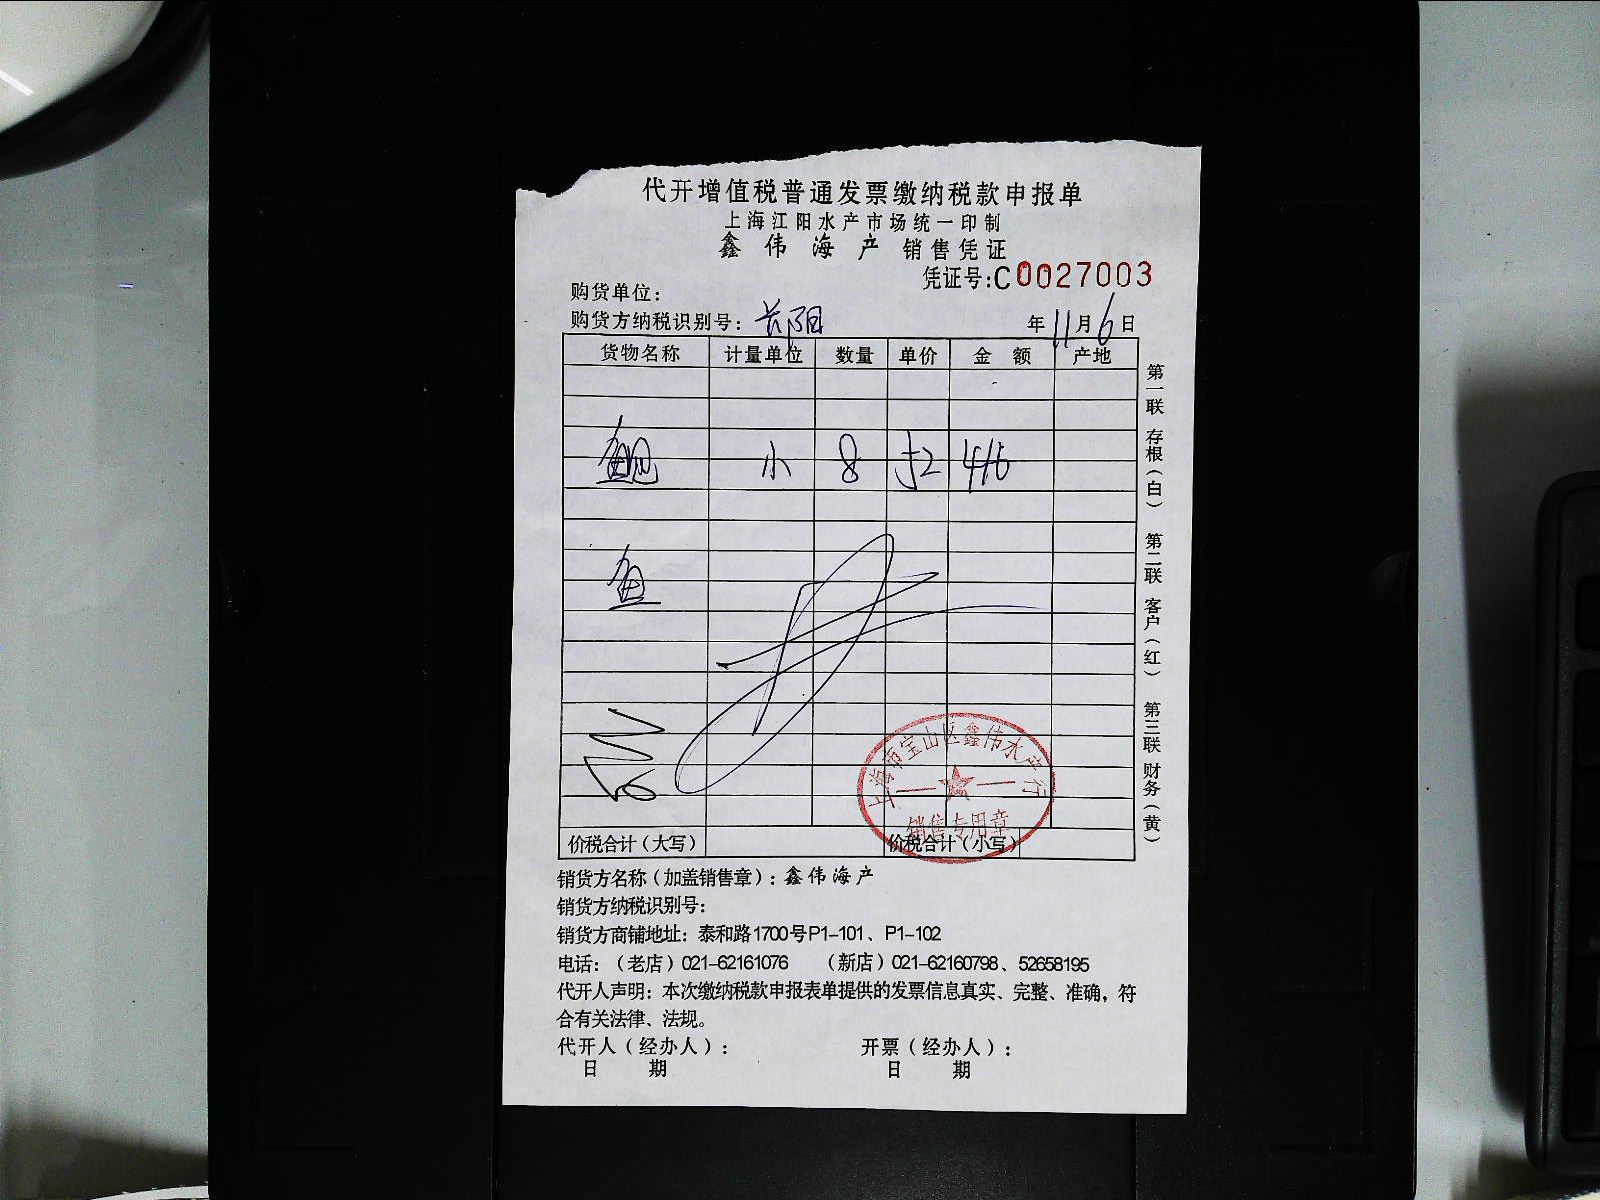 代开增值税普通发票缴纳税款申报单
上海江阳水产市场统一印制
鑫伟海产 销售凭证
凭证号:C0027003
购货单位：
购货方纳税识别号：长阳 年11月6日
货物名称 计量单位 数量 单价 金额 产地
鲍 小 8 52 416
鱼
价税合计（大写） 价税合计（小写）
上海市宝山区鑫伟水产行
销售专用章
销货方名称（加盖销售章）：鑫伟海产
销货方纳税识别号：
销货方商铺地址：泰和路1700号P1-101、P1-102
电话：（老店）021-62161076 （新店）021-62160798、52658195
代开人声明：本次缴纳税款申报表单提供的发票信息真实、完整、准确，符
合有关法律、法规。
代开人（经办人）： 开票（经办人）：
日 期 日 期
第一联 存根（白） 第二联 客户（红） 第三联 财务（黄）